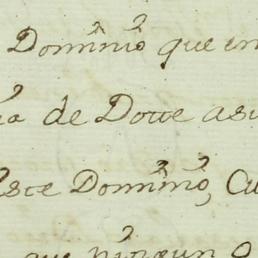 Dominio que en
de Dote asi
este Dominio, Cu
que ningun o